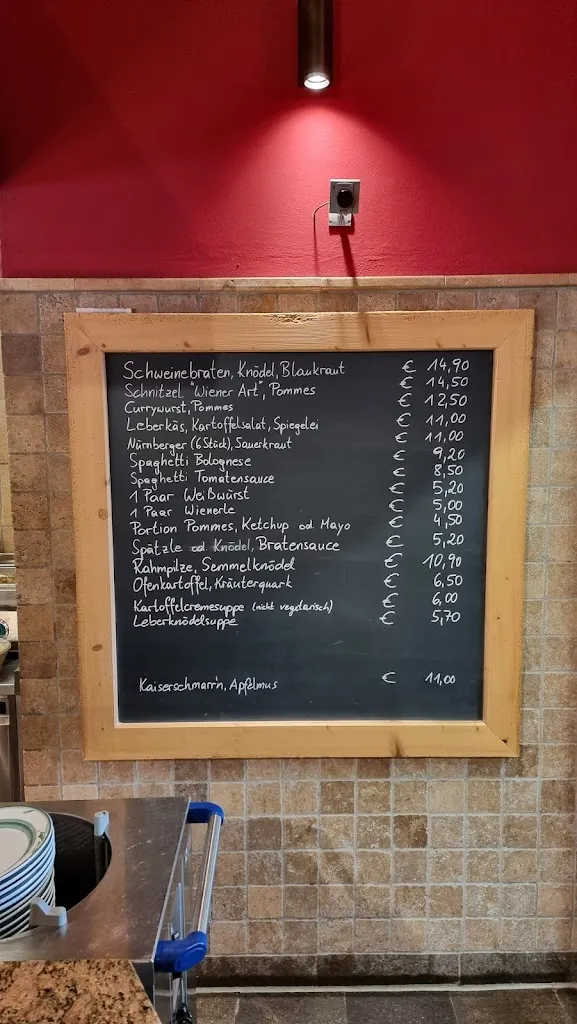 Schweinebraten, Knödel, Blaukraut € 14,90
Schnitzel "Wiener Art", Pommes € 14,50
Currywurst, Pommes € 12,50
Leberkäs, Kartoffelsalat, Spiegelei € 11,00
Nürnberger (6 Stück), Sauerkraut € 11,00
Spaghetti Bolognese € 9,20
Spaghetti Tomatensauce € 8,50
1 Paar Weißwürst € 5,20
1 Paar Wienerle € 5,00
Portion Pommes, Ketchup od Mayo € 4,50
Spätzle od Knödel, Bratensauce € 5,20
Rahmpilze, Semmelknödel € 10,90
Ofenkartoffel, Kräuterquark € 6,50
Kartoffelcremesuppe (nicht vegetarisch) € 6,00
Leberknödelsuppe € 5,70
Kaiserschmarr'n, Apfelmus € 11,00